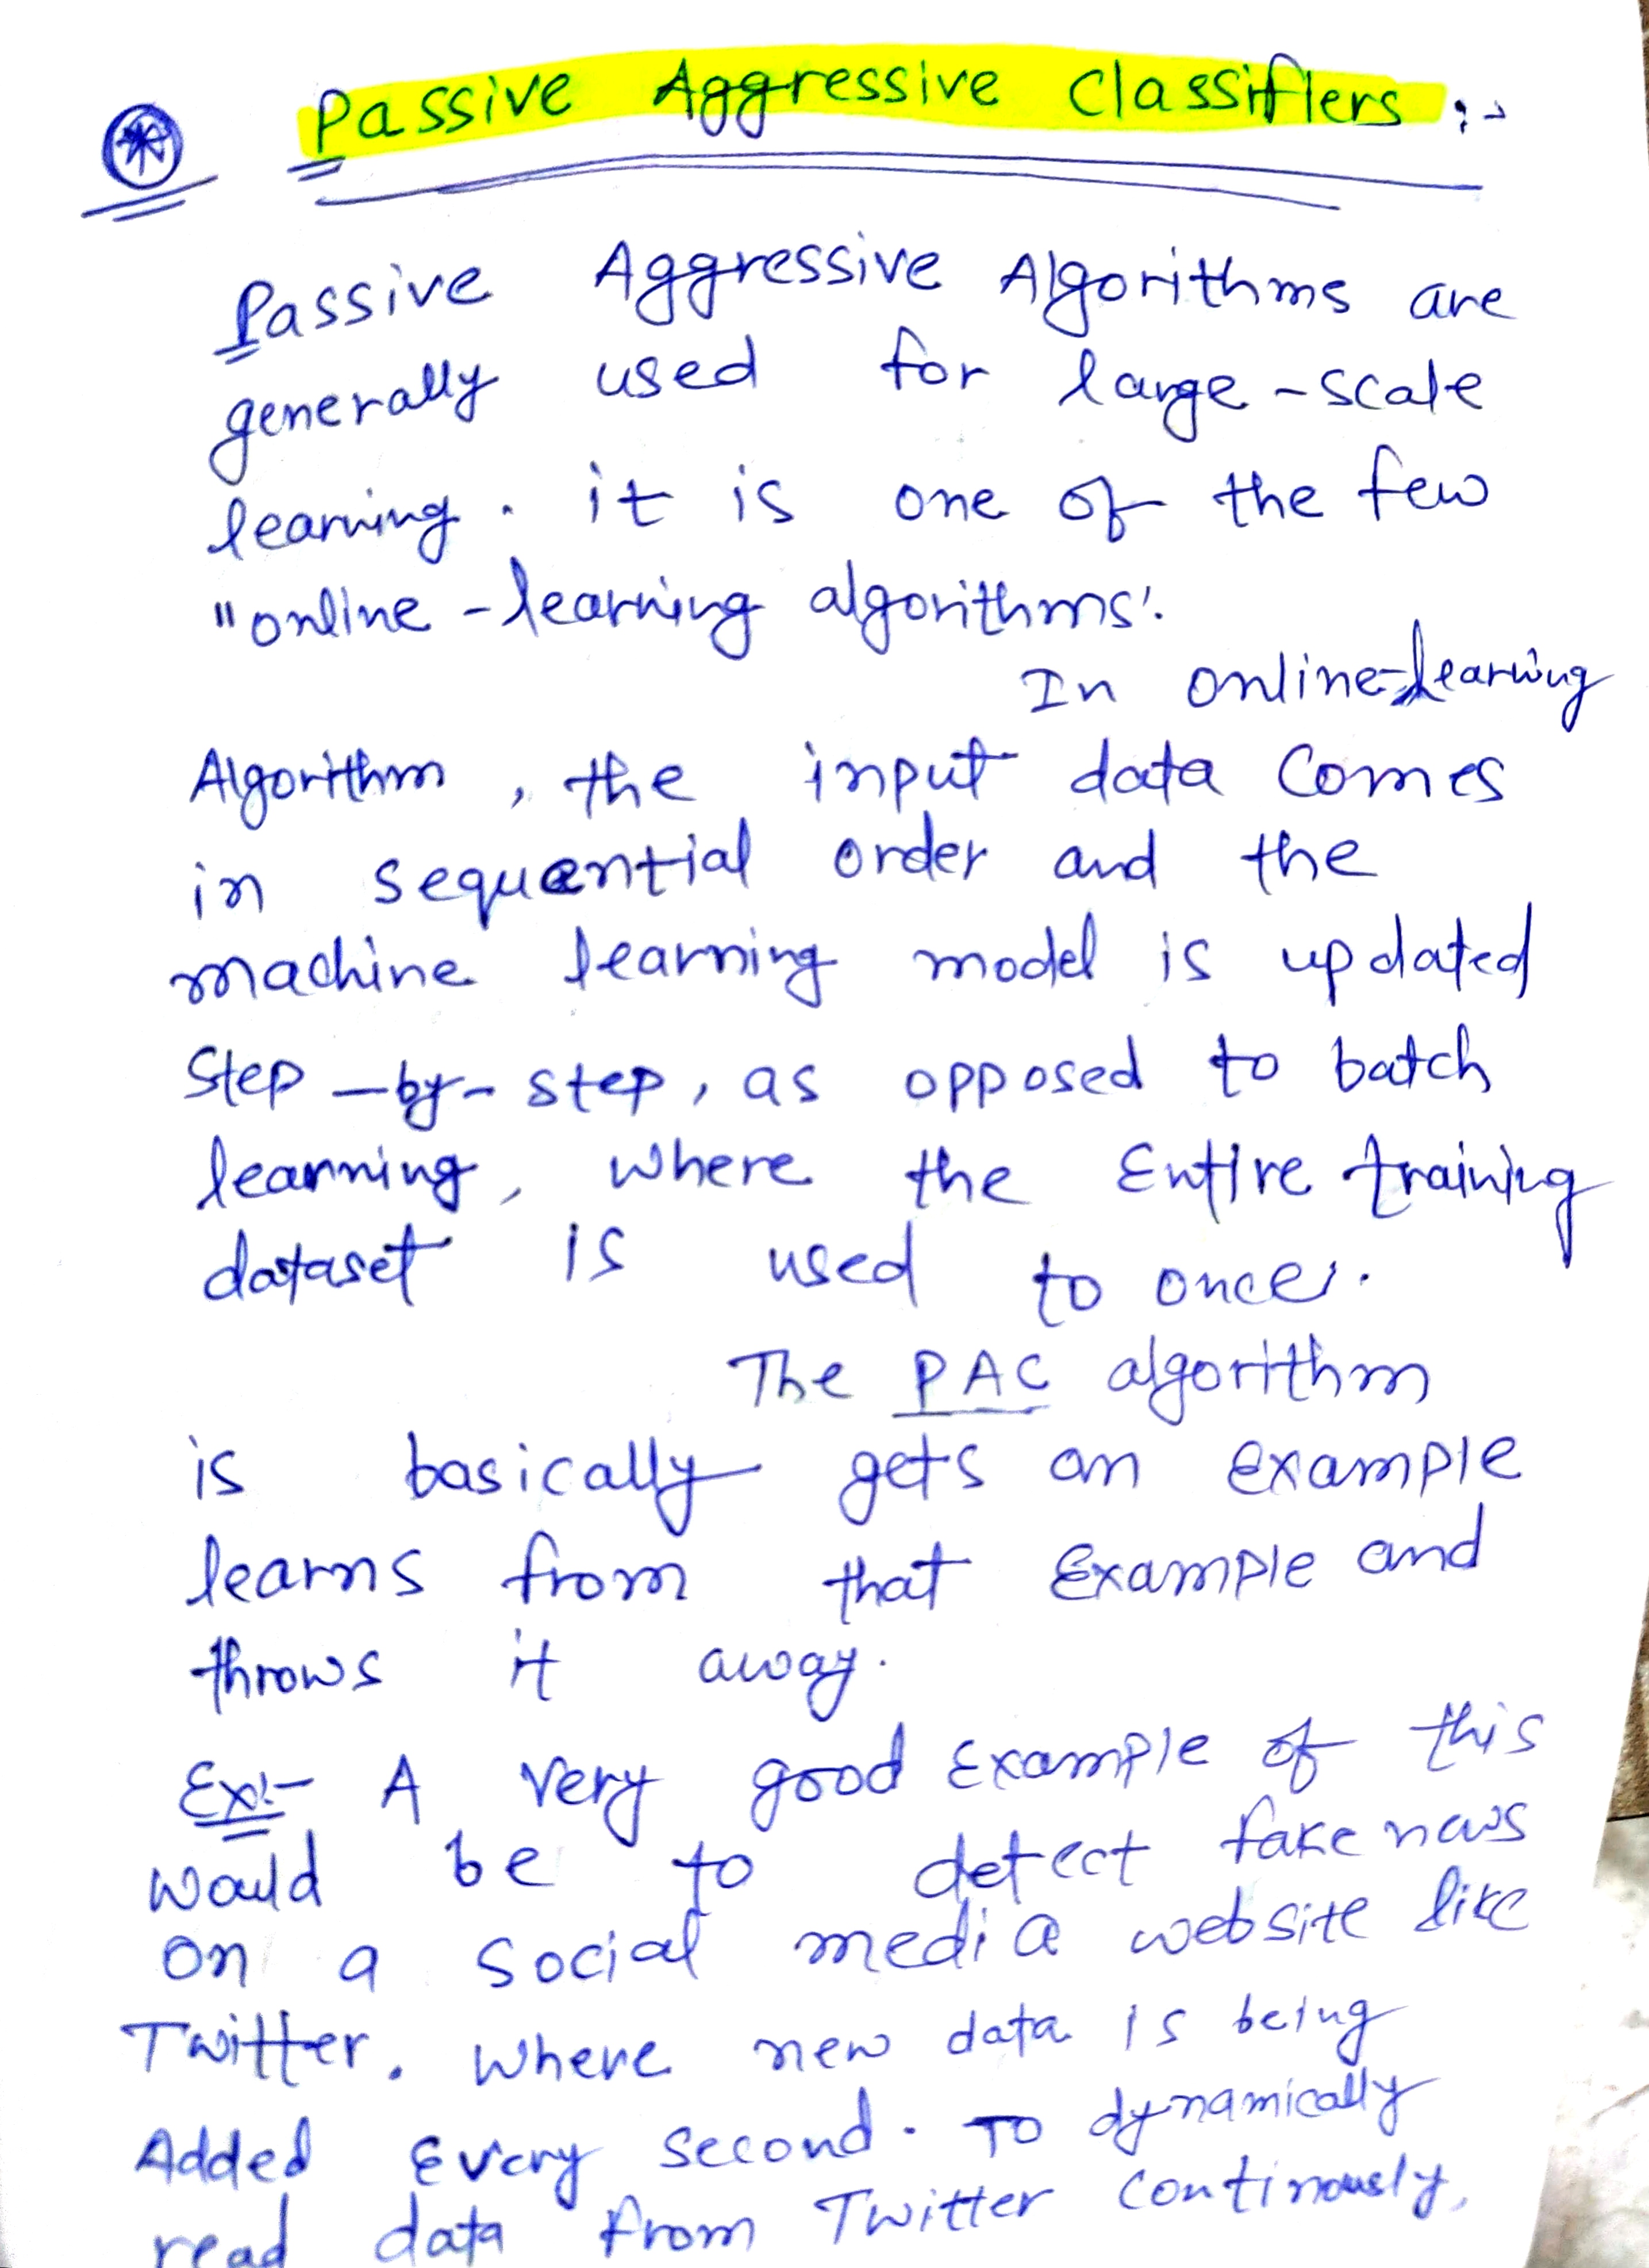 Passive Aggressive Classifiers :-
Passive Aggressive Algorithms are
generally used for large-scale
learning. it is one of the few
"online-learning algorithms".
In online-learning
Algorithm, the input data Comes
in sequential order and the
machine learning model is updated
Step-by-step, as opposed to batch
learning, where the Entire training
dataset is used to once.
The PAC algorithm
is basically gets an example
learns from that Example and
throws it away.
Ex:- A very good Example of this
would be to detect fake news
on a social media website like
Twitter. where new data is being
Added Every second. To dynamically
read data from Twitter continously,